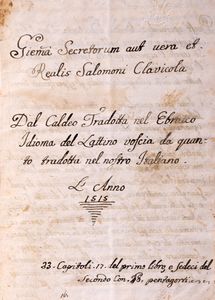 Giema Secretorum aut uera et
Realis Salomoni Clavicola
Dal Caldeo Tradotta nel Ebraico
Idioma del Lattino voscia da quan-
to tradotta nel nostro Italiano.
L'Anno
1515
33. Capitoli. 17. del primo libro, e sedeci del
Secondo Con. 48. pentagoni